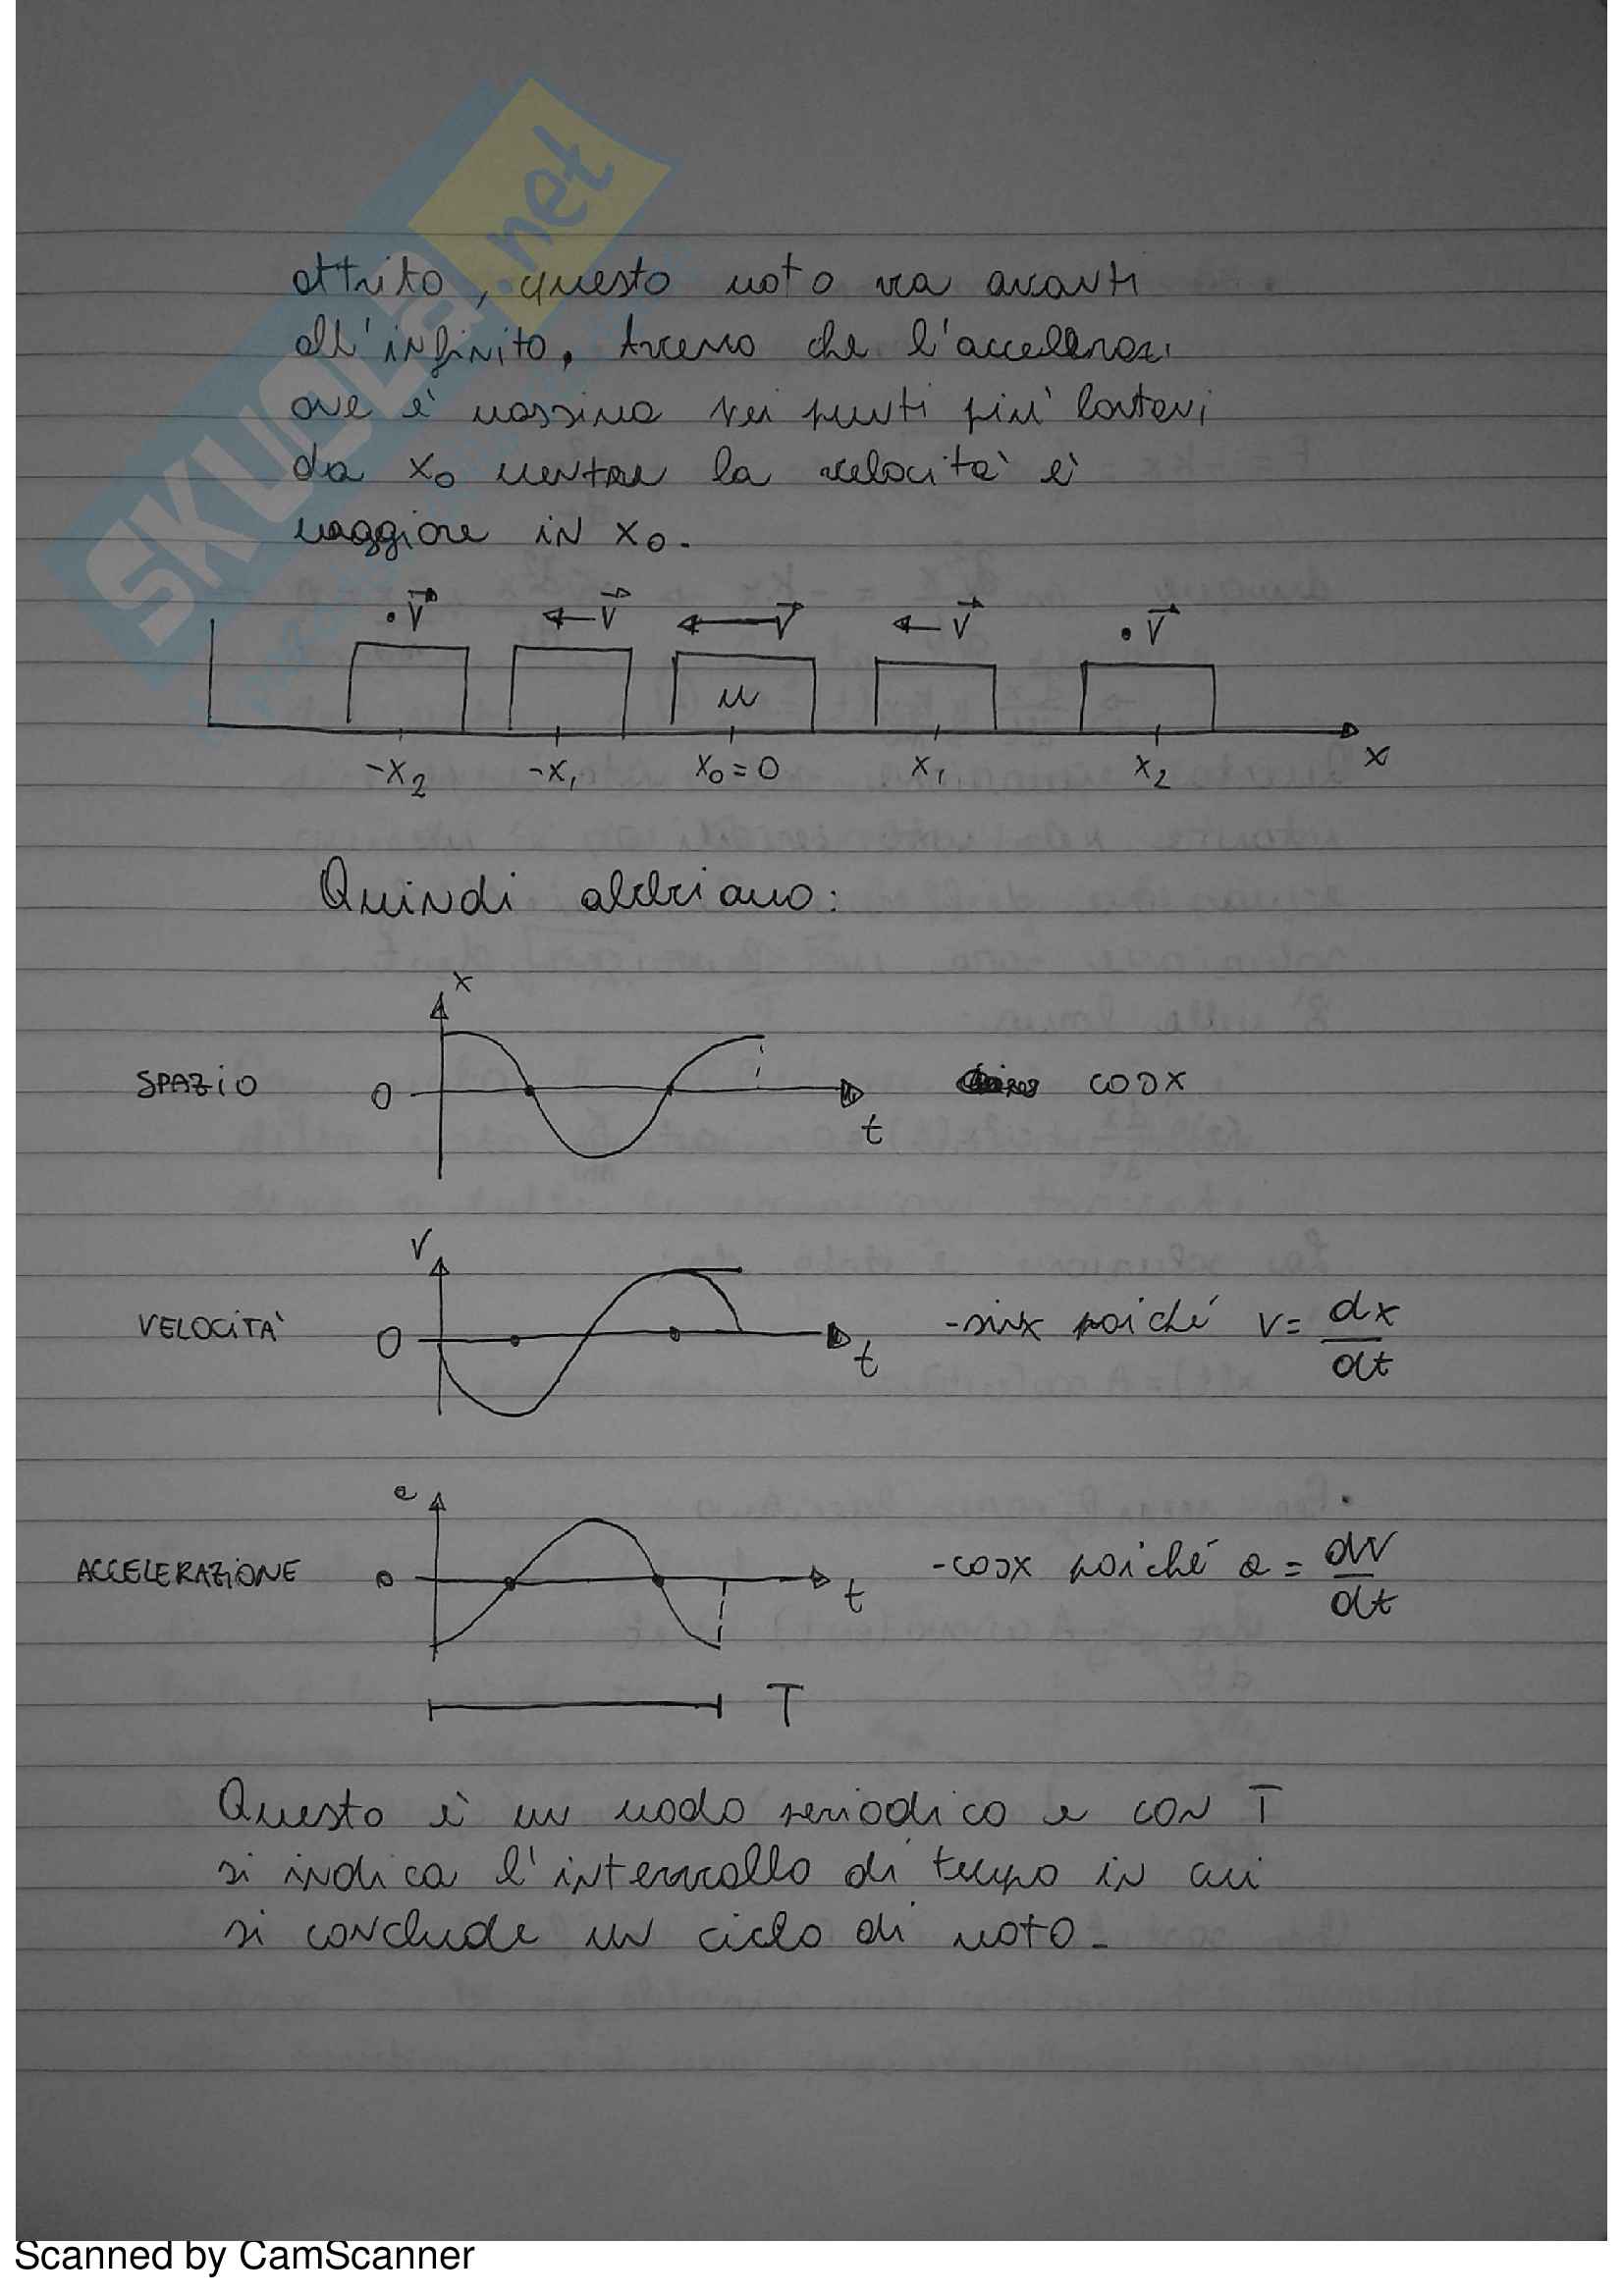 SKUOLA.net
attrito, questo moto va avanti
all'infinito. Avremo che l'accelerazi
one è massima nei punti più lontani
da x₀ mentre la velocità è
maggiore in x₀.
v⃗ v⃗ v⃗ v⃗ v⃗
M
-x₂ -x₁ x₀=0 x₁ x₂ x
Quindi abbiamo:
x
SPAZIO 0 t cosx
V
VELOCITÀ 0 t -sinx poiché v = dx/dt
a
ACCELERAZIONE 0 t -cosx poiché a = dv/dt
T
Questo è un modo periodico e con T
si indica l'intervallo di tempo in cui
si conclude un ciclo di moto.
Scanned by CamScanner